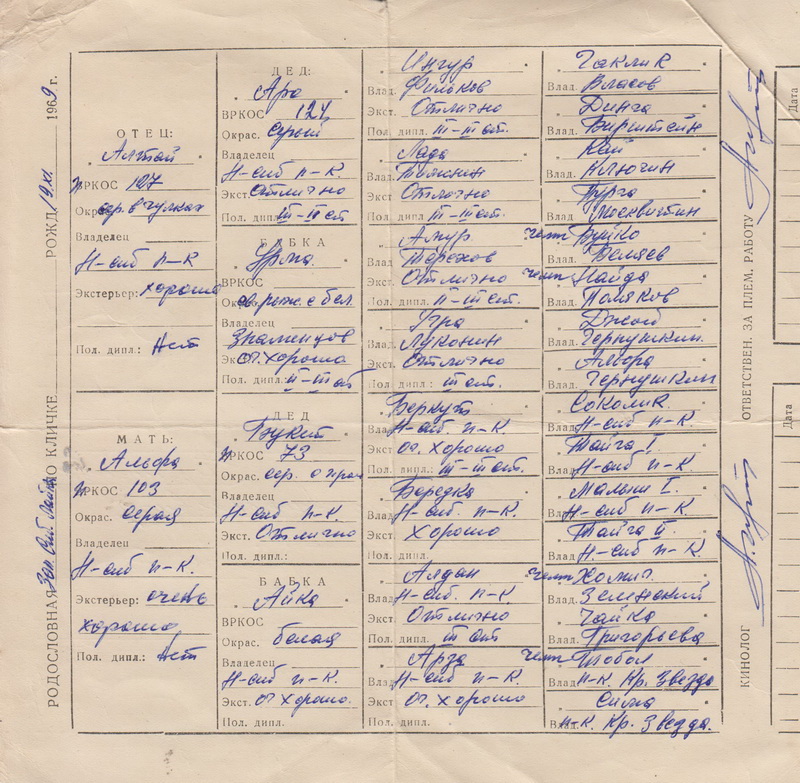 РОДОСЛОВНАЯ Зап. Сиб. Лайка ПО КЛИЧКЕ РОЖД. 19.XI. 1969 г.
ОТЕЦ:
Алтай
ВРКОС 127
Окрас. сер. в чулках
Владелец
Н-сиб п-к
Экстерьер: хорошо
Пол. дипл.: Нет
МАТЬ:
Альфа
ВРКОС 103
Окрас. серая
Владелец
Н-сиб п-к.
Экстерьер: очень
хорошо
Пол. дипл.: Нет
ДЕД:
Ара
ВРКОС 124
Окрас. серый
Владелец
Н-сиб п-к.
Экст. Отлично
Пол. дипл. III-III ст
БАБКА
Урма.
ВРКОС
Окрас. св. рыж. с бел.
Владелец
Знаменцов
Экст. оч. хорошо
Пол. дипл. II-III ст
ДЕД
Букет
ВРКОС 73
Окрас. сер.
Владелец
Н-сиб п-к
Экст. Отлично
Пол. дипл.:
БАБКА
Айка
ВРКОС
Окрас. белая
Владелец
Н-сиб п-к.
Экст. оч. хорошо.
Пол. дипл.
Ингур
Влад.
Экст. Отлично
Пол. дипл. III-III ст.
Лада
Влад.
Экст Отлично
Пол. дипл. III-III ст.
Амур
Влад. Терехов
Экст. Отлично
Пол. дипл. II-III ст.
Угра
Влад. Луконин
Экст Отлично
Пол. дипл.: III ст.
Беркут
Влад. Н-сиб п-к.
Экст. оч. хорошо
Пол. дипл.: III-III ст.
Бередка
Влад. Н-сиб п-к.
Экст. хорошо
Пол. дипл.
Алдан
Влад. Н-сиб п-к.
Экст. Отлично
Пол. дипл. III ст
Арза
Влад. Н-сиб п-к.
Экст оч. хорошо
Пол. дипл.
Таклик
Влад. Власов
Динга
Влад. Бирштейн
Кай
Влад. Ключин
Пурга
Влад Москвитин
чемп Буйко
Влад. Беляев
чемп Найда
Влад. Поляков
Джой
Влад. Чернушкин.
Альфа
Влад. Чернушкин
Соколик
Влад. Н-сиб п-к.
Тайга I.
Влад. Н-сиб п-к.
Малыш I.
Влад. Н-сиб п-к.
Тайга II.
Влад. Н-сиб п-к.
чемп
Влад. Земенский
Чайка
Влад. Григорьева
чемп Тобол
Влад. п-к. Кр. Звезда
Сима
Влад. п-к. Кр. Звезда.
КИНОЛОГ ОТВЕТСТВЕН. ЗА ПЛЕМ. РАБОТУ
Дата
Дата